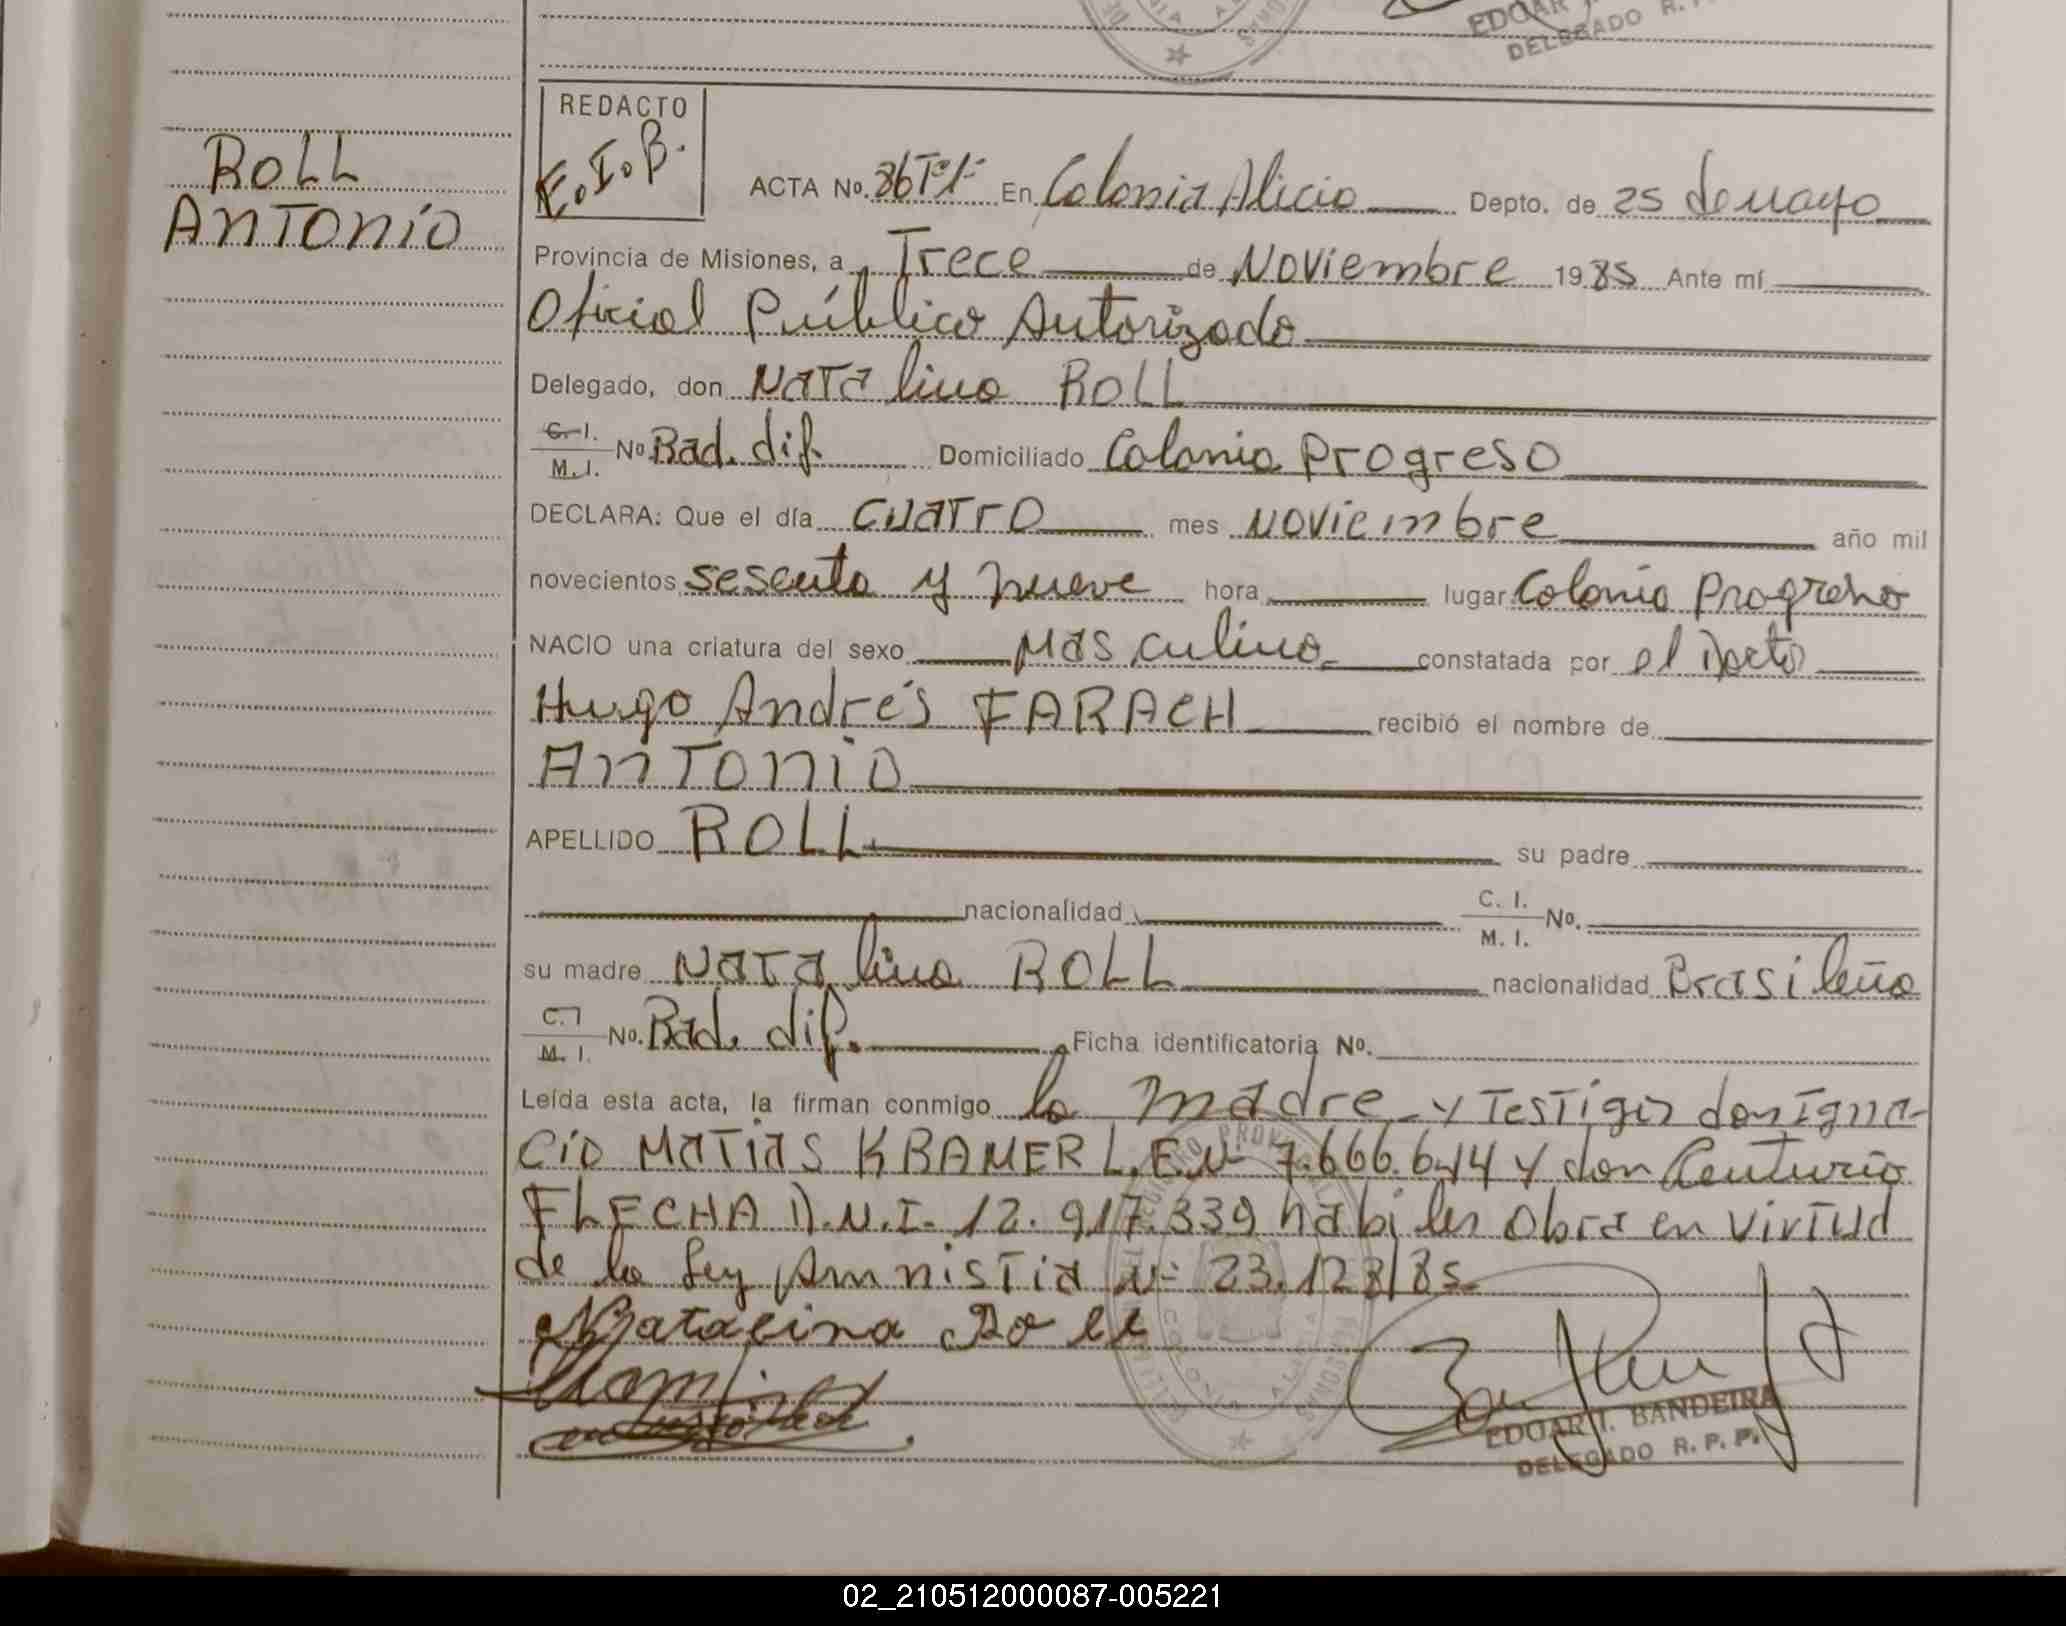 EDGAR
DELEGADO R.
REDACTO
E.I.B.
ROLL
ANTONIO
ACTA No. 86 Tº1º En Colonia Alicia Depto. de 25 de Mayo
Provincia de Misiones, a Trece de Noviembre 1985 Ante mí
Oficial Público Autorizado
Delegado, don Natalina ROLL
C. I.
M. I. No Rad. dif. Domiciliado Colonia Progreso
DECLARA: Que el día cuatro mes noviembre año mil
novecientos sesenta y nueve hora lugar Colonia Progreso
NACIO una criatura del sexo Masculino constatada por el Docto
Hugo Andrés FARACH recibió el nombre de
ANTONIO
APELLIDO ROLL su padre
nacionalidad C. I.
M. I. No.
su madre Natalina ROLL nacionalidad Brasileña
C. I
M. I. No. Rad. dif. Ficha identificatoria No.
Leída esta acta, la firman conmigo la madre y Testigos don Igna-
cio Matias KRAMER L.E.Nº 7.666.644 y don Centurio
FLECHA D.N.I. 12.917.339 habiles Obra en virtud
de la Ley Amnistia Nº 23.128/85.
Natalina Roll
EDGAR I. BANDEIRA
DELEGADO R. P. P.
02_210512000087-005221